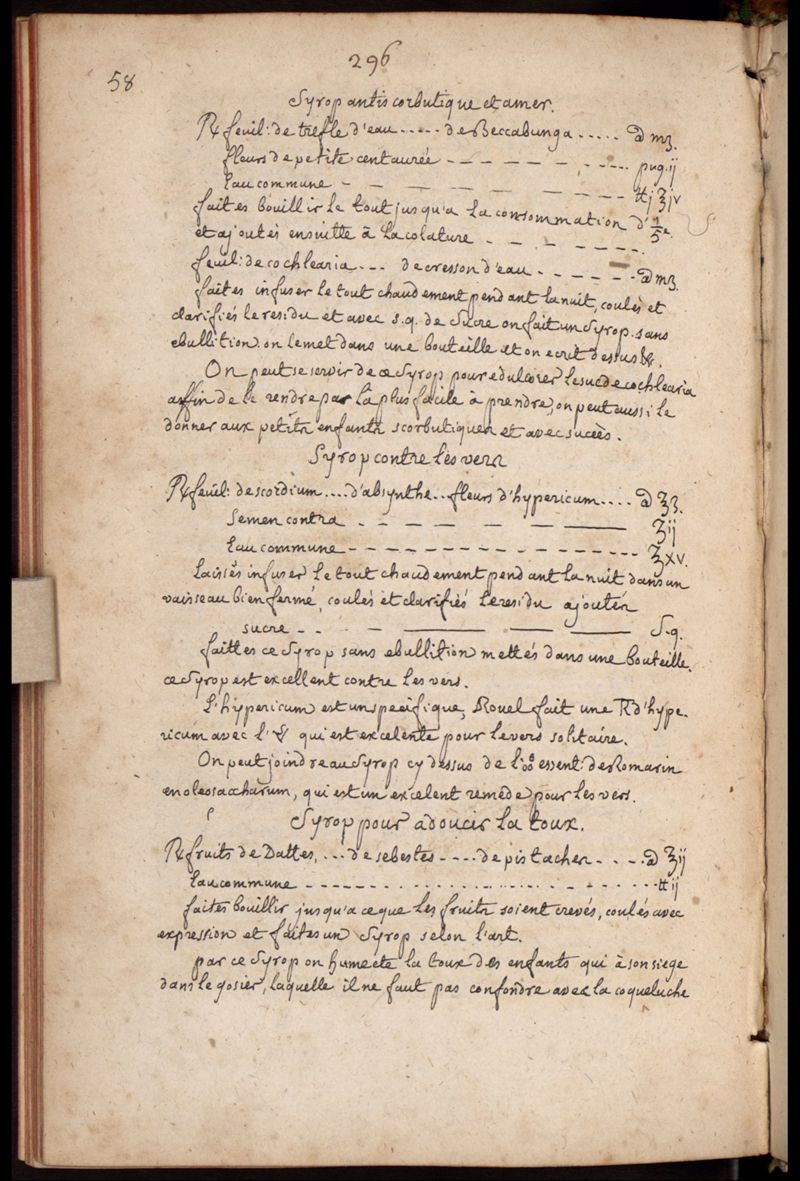 296
58
Syrop antiscorbutique et amer.
℞ feuil: de trefle d'eau ..... de Beccabunga ..... a͞a mʒ.
fleurs de petite centaurée - - - - - - ..... pug. ij
Eau commune - - - - - - - ℔j ℥jv
faites bouillir le tout jusqu'a la consommation d'1/5e
et ajoutés ensuitte à la colature - - - - - - - -
feuil: de cochlearia ... de cresson d'eau - - - - - - a͞a mʒ.
faites infuser le tout chaudement pendant la nuit, coulés et
clarifiés le residu et avec s.q. de sucre on fait un Syrop sans
ebullition. on le met dans une bouteille et on ecrit dessus
On peut se servir de ce Syrop pour edulcorer le suc de cochlearia
affin de le rendre par là plus facile à prendre, on peut aussi le
donner aux petits enfants scorbutiques et avec succès.
Syrop contre les vers
℞ feuil: de scordium .... d'absynthe .. fleurs d'hypericum .... a͞a ℥ʒ.
Semen contra - - - - - - ℥ij
Eau commune - - - - - - - - - - - - ℥xv.
Laissés infuser le tout chaudement pendant la nuit dans un
vaisseau bien fermé, coulés et clarifiés le residu ajoutés
sucre - - - - - - S.q.
faittes ce Syrop sans ebullition mettés dans une bouteille.
ce Syrop est excellent contre les vers.
L'hypericum est un specifique, Rouel fait une R d'hype-
ricum avec l' qui est excelente pour le vers solitaire.
On peut joindre au Syrop cy dessus de l'oo essent: de Romarin
en oleosaccharum, qui est un excelent remede pour les vers.
Syrop pour adoucir la toux.
℞ fruits de Dattes, ... de sebestes .... de pistaches .... a͞a ℥ij
Eau commune - - - - - ............ - - - - - - ℔ij
faites bouillir jusqu'a ce que les fruits soient crevés, coulés avec
expression et faites un Syrop selon l'art.
par ce Syrop on humecte la toux des enfants qui à son siege
dans le gosier, laquelle il ne faut pas confondre avec la coqueluche